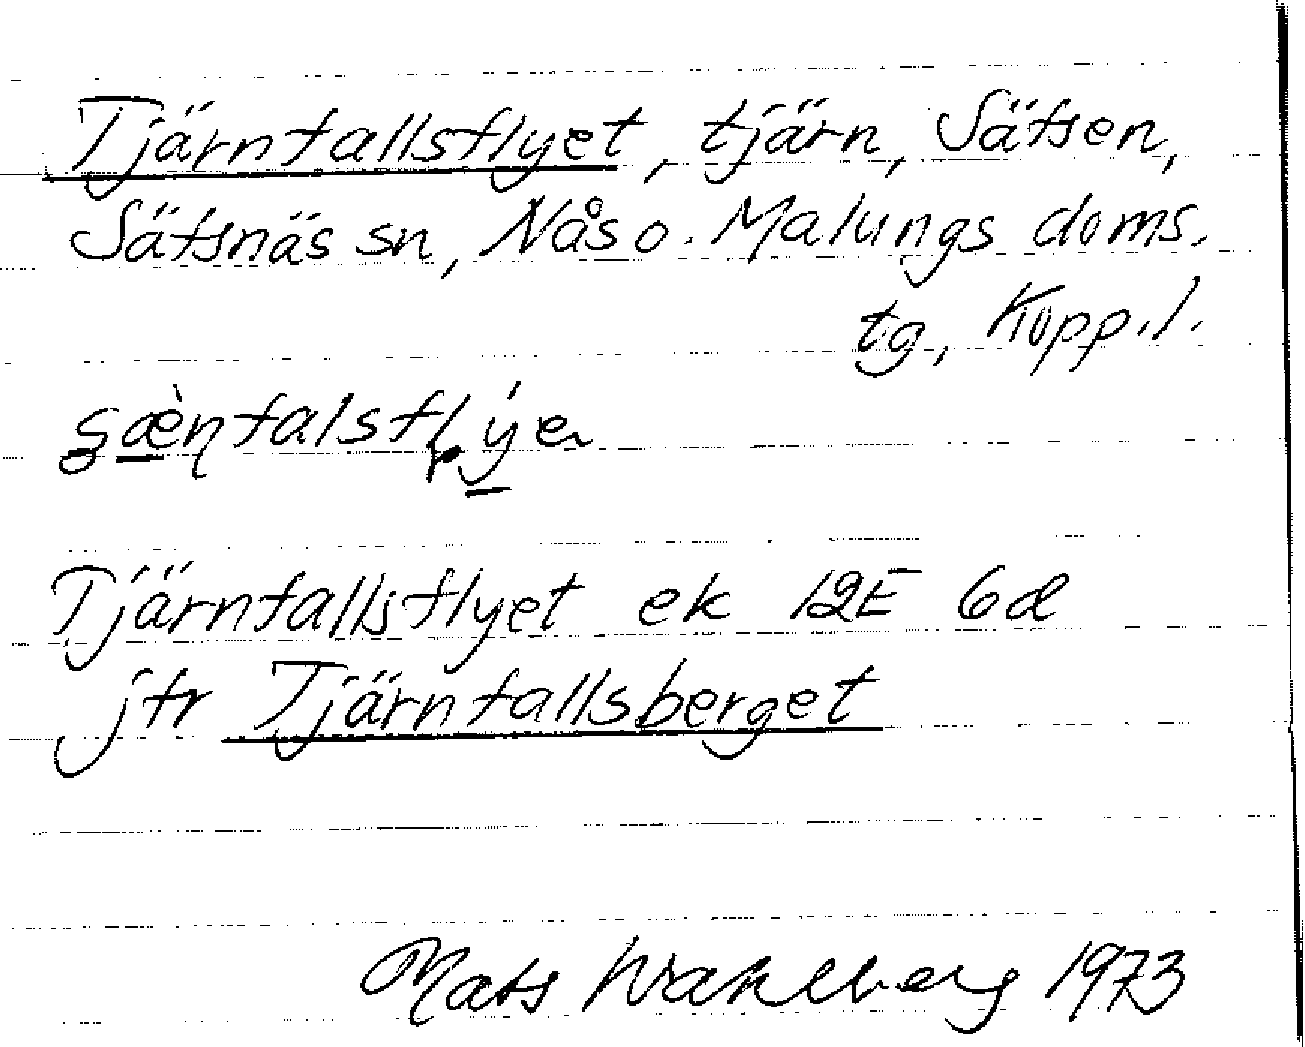 Tjärnfallsflyet, tjärn, Säfsen,
Säfsnäs sn, Nås o. Malungs doms.
tg, Kopp.l.
Tjärnfallsflyet ek 12E 6d
jfr Tjärnfallsberget
Mats Wahlberg 1973